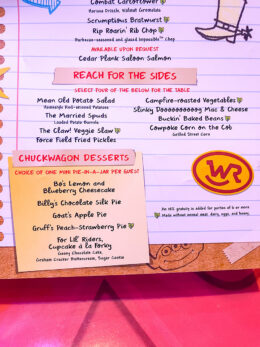 Combat Carlotflower
Harissa Drizzle, Walnut Gremolata
Scrumptious Bratwurst
Rip Roarin' Rib Chop
Barbecue-seasoned and glazed Impossible™ Chop
AVAILABLE UPON REQUEST
Cedar Plank Saloon Salmon
REACH FOR THE SIDES
SELECT FOUR OF THE BELOW FOR THE TABLE
Mean Old Potato Salad
Rosemary Fruit-seasoned Potatoes
The Married Spuds
Loaded Potato Barrels
The Claw! Veggie Slaw
Force Field Fried Pickles
Campfire-roasted Vegetables
Slinky Doooooooooog Mac & Cheese
Buckin' Baked Beans
Cowpoke Corn on the Cob
Grilled Street Corn
CHUCKWAGON DESSERTS
CHOICE OF ONE MINI PIE-IN-A-JAR PER GUEST
Bo's Lemon and
Blueberry Cheesecake
Billy's Chocolate Silk Pie
Goat's Apple Pie
Gruff's Peach-Strawberry Pie
For Lil' Riders,
Cupcake à la Forky
Gooey Chocolate Cake,
Graham Cracker Buttercream, Sugar Cookie
WR
An 18% gratuity is added for parties of 6 or more
Made without animal meat, dairy, eggs, and honey.